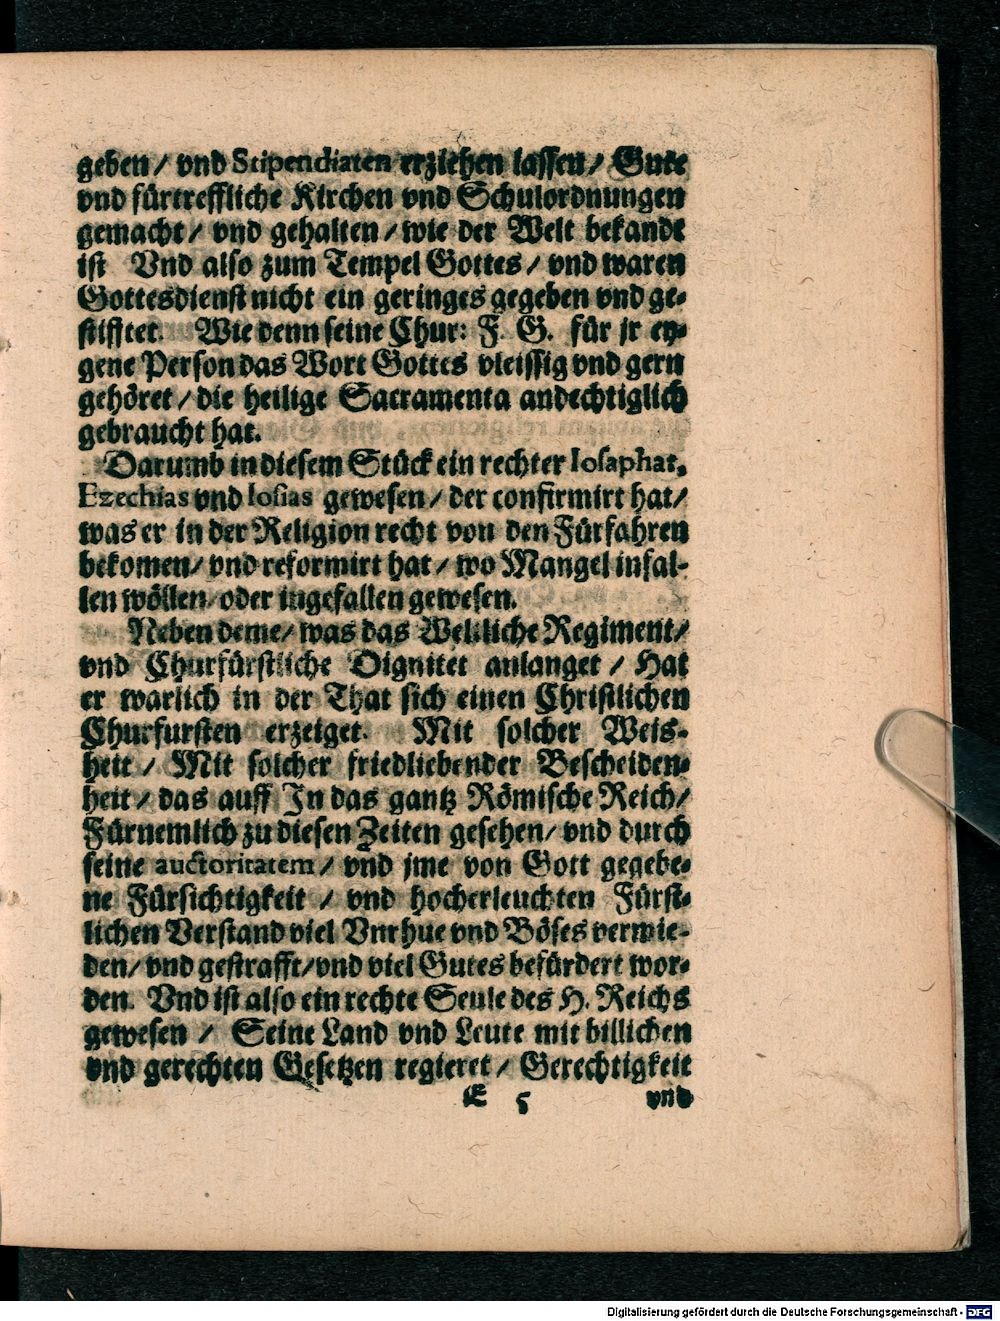 geben / vnd Stipendiaten erziehen lassen / Gute
vnd fürtreffliche Kirchen vnd Schulordnungen
gemacht / vnd gehalten / wie der Welt bekandt
ist Vnd also zum Tempel Gottes / vnd waren
Gottesdienst nicht ein geringes gegeben vnd ge-
stifftet. Wie denn seine Chur: F. G. für jr ey-
gene Person das Wort Gottes vleissig vnd gern
gehöret / die heilige Sacramenta andechtiglich
gebraucht hat.
Darumb in diesem Stück ein rechter Iosaphat,
Ezechias vnd Iosias gewesen / der confirmirt hat /
was er in der Religion recht von den Fürfahren
bekomen / vnd reformirt hat / wo Mangel infal-
len wöllen / oder ingefallen gewesen.
Neben deme / was das Weltliche Regiment /
vnd Churfürstliche Dignitet anlanget / Hat
er warlich in der That sich einen Christlichen
Churfursten erzeiget. Mit solcher Weis-
heit / Mit solcher friedliebender Bescheiden-
heit / das auff In das gantz Römische Reich /
Fürnemlich zu diesen Zeiten gesehen / vnd durch
seine auctoritatem / vnd jme von Gott gegebe-
ne Fürsichtigkeit / vnd hocherleuchten Fürst-
lichen Verstand viel Vnrhue vnd Böses vermie-
den / vnd gestrafft / vnd viel Gutes befürdert wor-
den. Vnd ist also ein rechte Seule des H. Reichs
gewesen / Seine Land vnd Leute mit billichen
vnd gerechten Gesetzen regieret / Gerechtigkeit
E 5 vnd
Digitalisierung gefördert durch die Deutsche Forschungsgemeinschaft - DFG